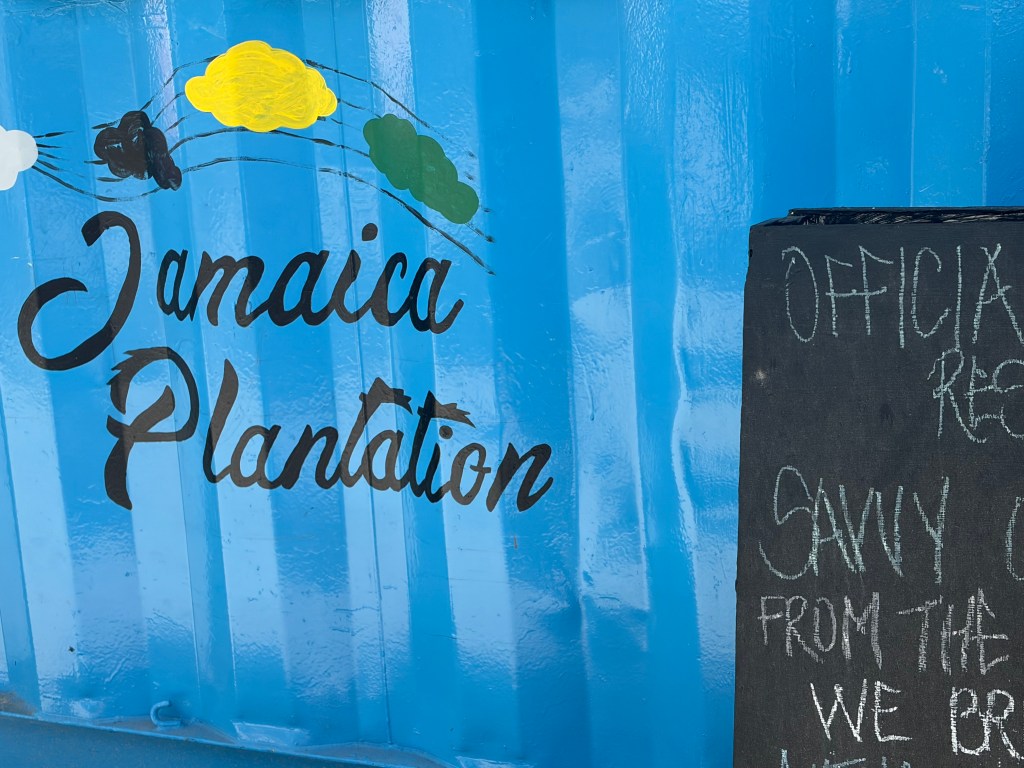 Jamaica
Plantation
OFFICIA
REC
SAVVY
FROM THE
WE BR